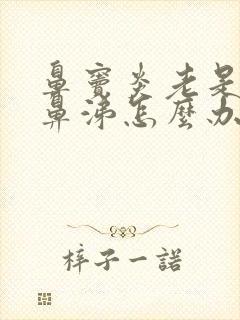 鼻窦炎老是
鼻涕怎麽办
梓子一諾